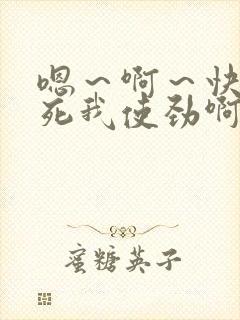 嗯～啊～快
死我使劲啊
蜜糖英子